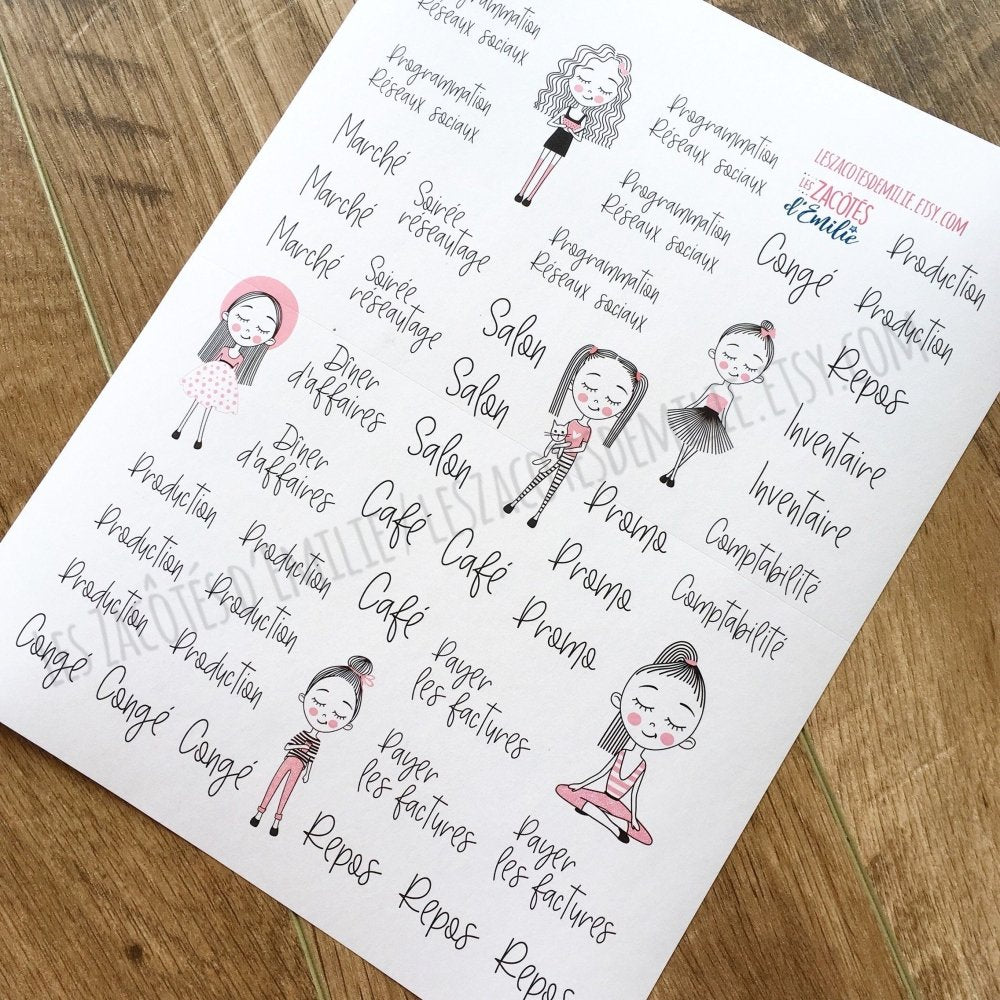 Programmation
Réseaux sociaux
Programmation
Réseaux sociaux
Programmation
Réseaux sociaux
Programmation
Réseaux sociaux
Programmation
Réseaux sociaux
LESZACOTESDEMILIE.ETSY.COM
LES ZACÔTÉS
d'Emilie
Marché
Marché
Marché
Soirée
réseautage
Soirée
réseautage
Congé
Production
Production
Repos
Inventaire
Inventaire
Comptabilité
Comptabilité
Salon
Salon
Salon
Dîner
d'affaires
Dîner
d'affaires
Café
Café
Café
Promo
Promo
Promo
Production
Production
Production
Production
Production
Production
Congé
Congé
Congé
Payer
les factures
Payer
les factures
Payer
les factures
Repos
Repos
Repos
LES ZACÔTÉS D'EMILIE / LESZACOTESDEMILIE.ETSY.COM